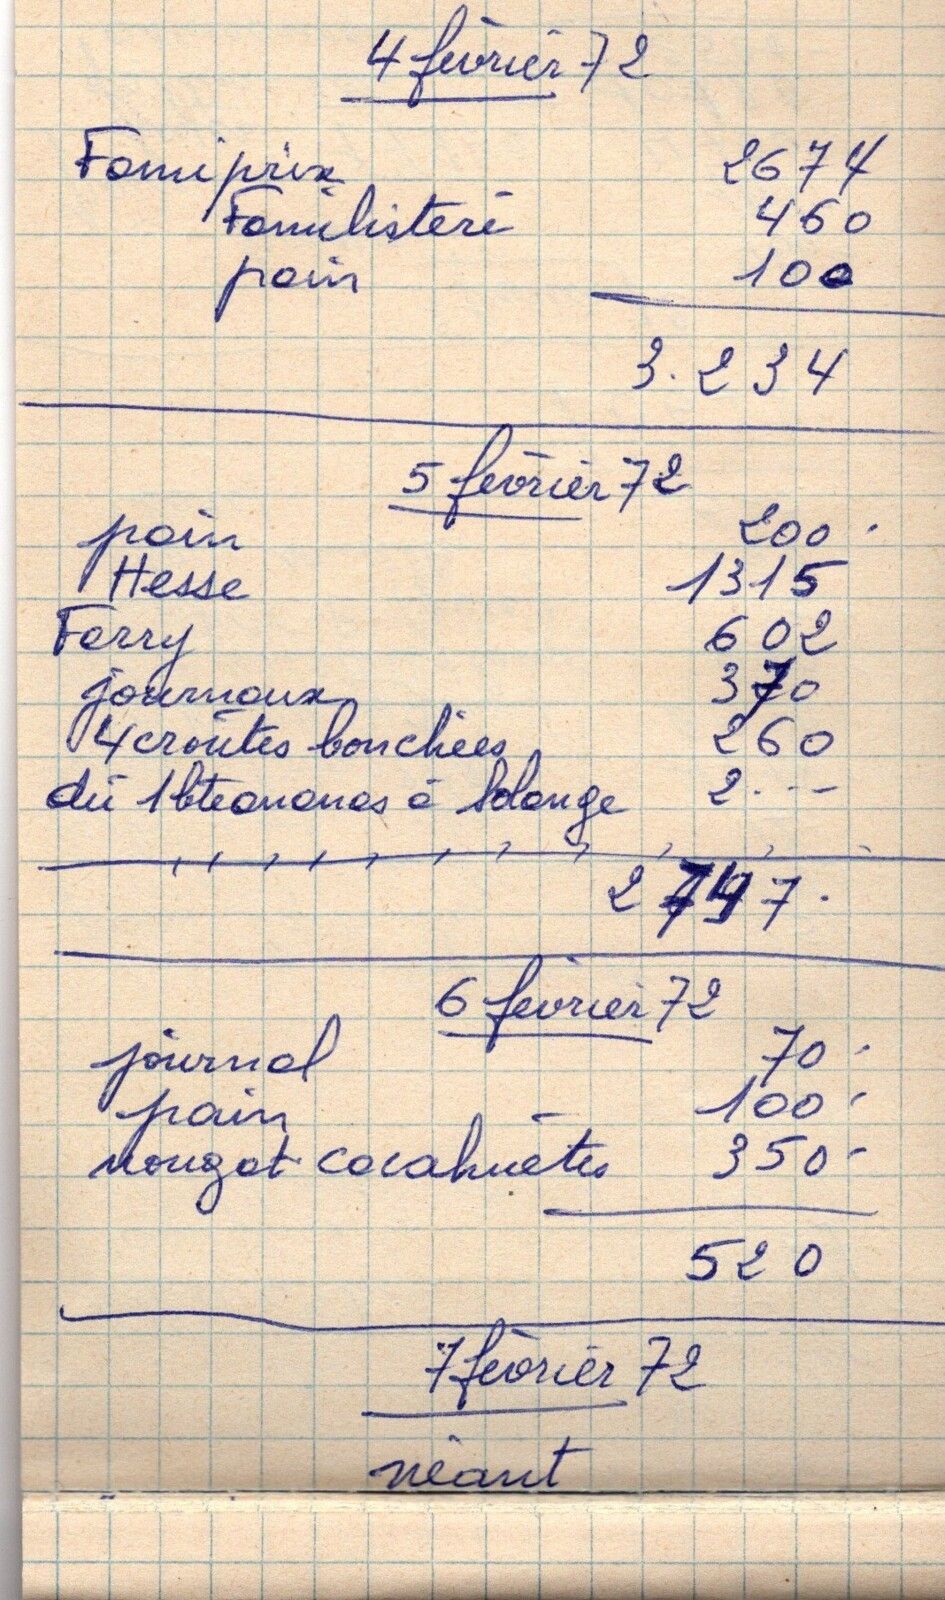 4 février 72
Famiprix 2674
Familistère 460
pain 100
3.234
5 février 72
pain 200.
Hesse 1315
Ferry 602
journaux 370
4 croûtes bouchées 260
dû 1 bte ananas à Solange 2...-
2747.
6 février 72
journal 70.
pain 100.
nougat cacahuètes 350-
520
7 février 72
néant